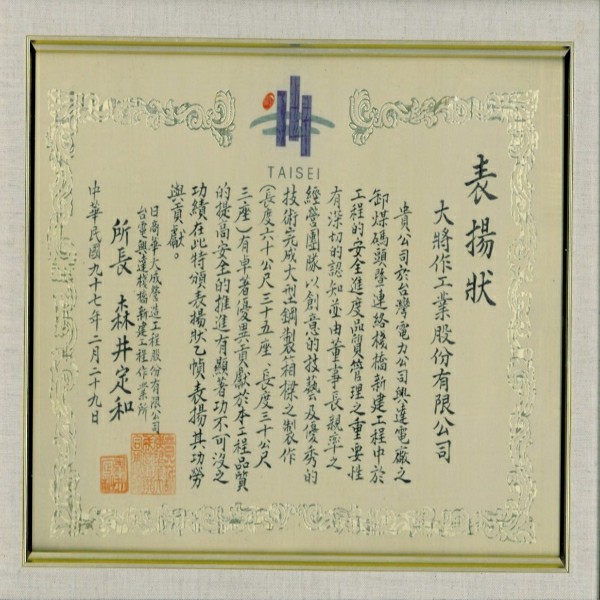 TAISEI
表揚狀
大將作工業股份有限公司
貴公司於台灣電力公司興達電廠之
卸煤碼頭暨連絡棧橋新建工程中於
工程的安全進度品質管理之重要性
有深切的認知並由董事長親率之
經營團隊以創意的技藝及優秀的
技術完成大型鋼製箱樑之製作
(長度六十公尺三十五座、長度三十公尺
三座)有卓著優異貢獻於本工程品質
的提高安全的推進有顯著功不可沒之
功績在此特頒表揚狀乙幀表揚其功勞
與貢獻。
日商華大成營造工程股份有限公司
台電興達棧橋新建工程作業所
所長 森井定和
中華民國九十七年二月二十九日